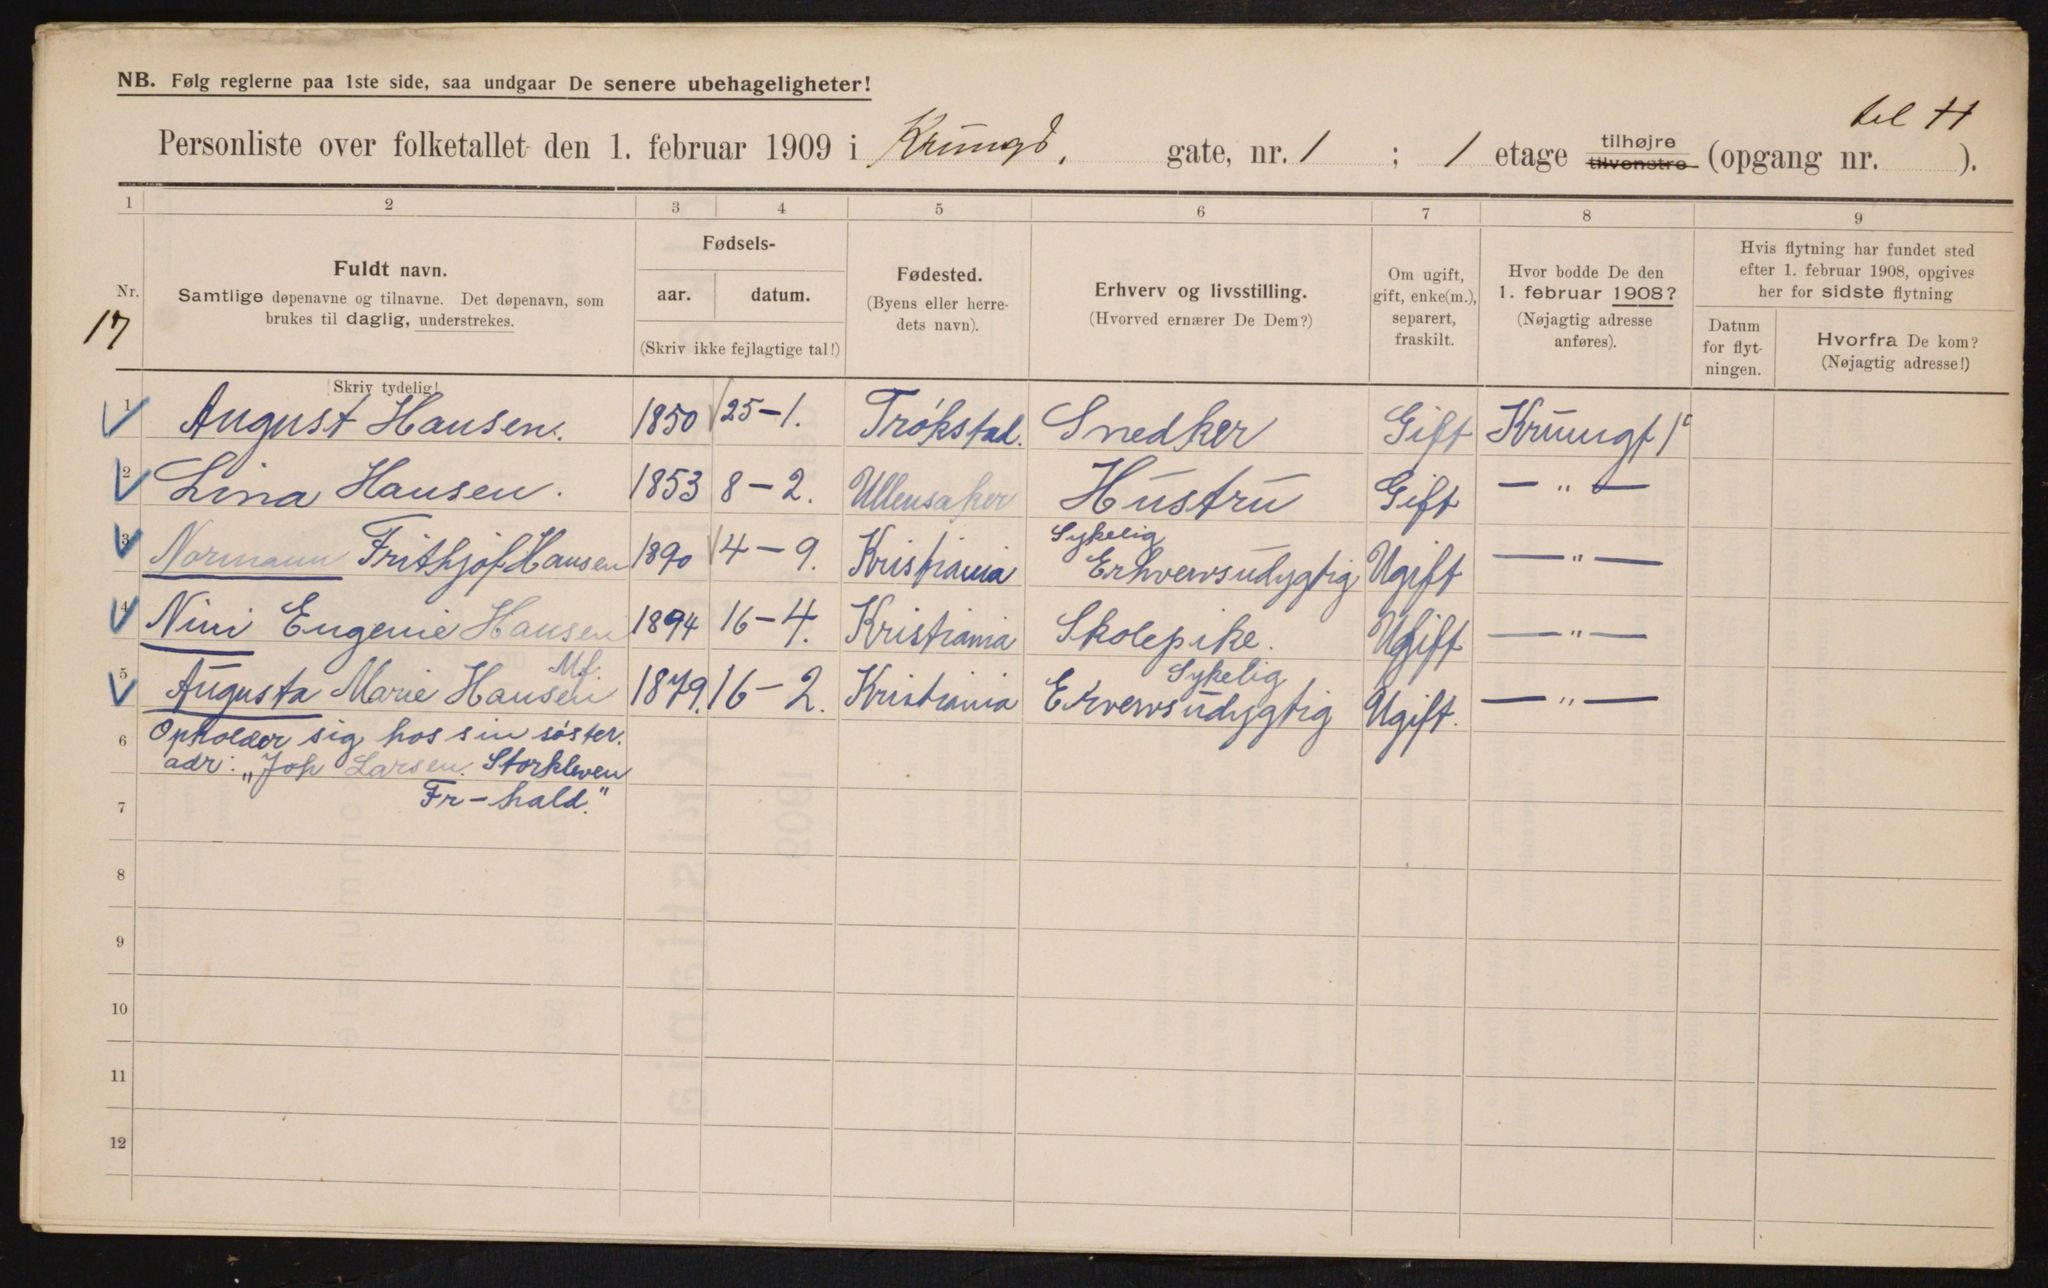 NB. Følg reglerne paa 1ste side, saa undgaar De senere ubehageligheter!
del H
Personliste over folketallet den 1. februar 1909 i Krumgd, gate, nr. 1 ; 1 etage tilhøjre tilvenstre (opgang nr. ).
1 2 3 4 5 6 7 8 9
Nr.
17
Fuldt navn.
Samtlige døpenavne og tilnavne. Det døpenavn, som
brukes til daglig, understrekes.
Skriv tydelig!
Fødsels-
aar. datum.
(Skriv ikke fejlagtige tal!)
Fødested.
(Byens eller herre-
dets navn).
Erhverv og livsstilling.
(Hvorved ernærer De Dem?)
Om ugift,
gift, enke(m.),
separert,
fraskilt.
Hvor bodde De den
1. februar 1908?
(Nøjagtig adresse
anføres).
Hvis flytning har fundet sted
efter 1. februar 1908, opgives
her for sidste flytning
Datum
for flyt-
ningen.
Hvorfra De kom?
(Nøjagtig adresse!)
1 August Hansen. 1850 25-1. Trøkstad. Snedker Gift Krumgt 1c
2 Lina Hansen. 1853 8-2. Ullensaker Hustru Gift — " —
3 Normann Frithjof Hansen 1890 4-9. Kristiania Sykelig Erhvervsudygtig Ugift — " —
4 Nini Eugenie Hansen 1894 16-4. Kristiania Skolepike. Ugift — " —
5 Augusta Marie Hansen Mf. 1879. 16-2. Kristiania Sykelig Ervervsudygtig Ugift. — " —
6 Opholder sig hos sin søster.
adr: "Joh Larsen. Storkleven
7 Fr-hald."
8
9
10
11
12